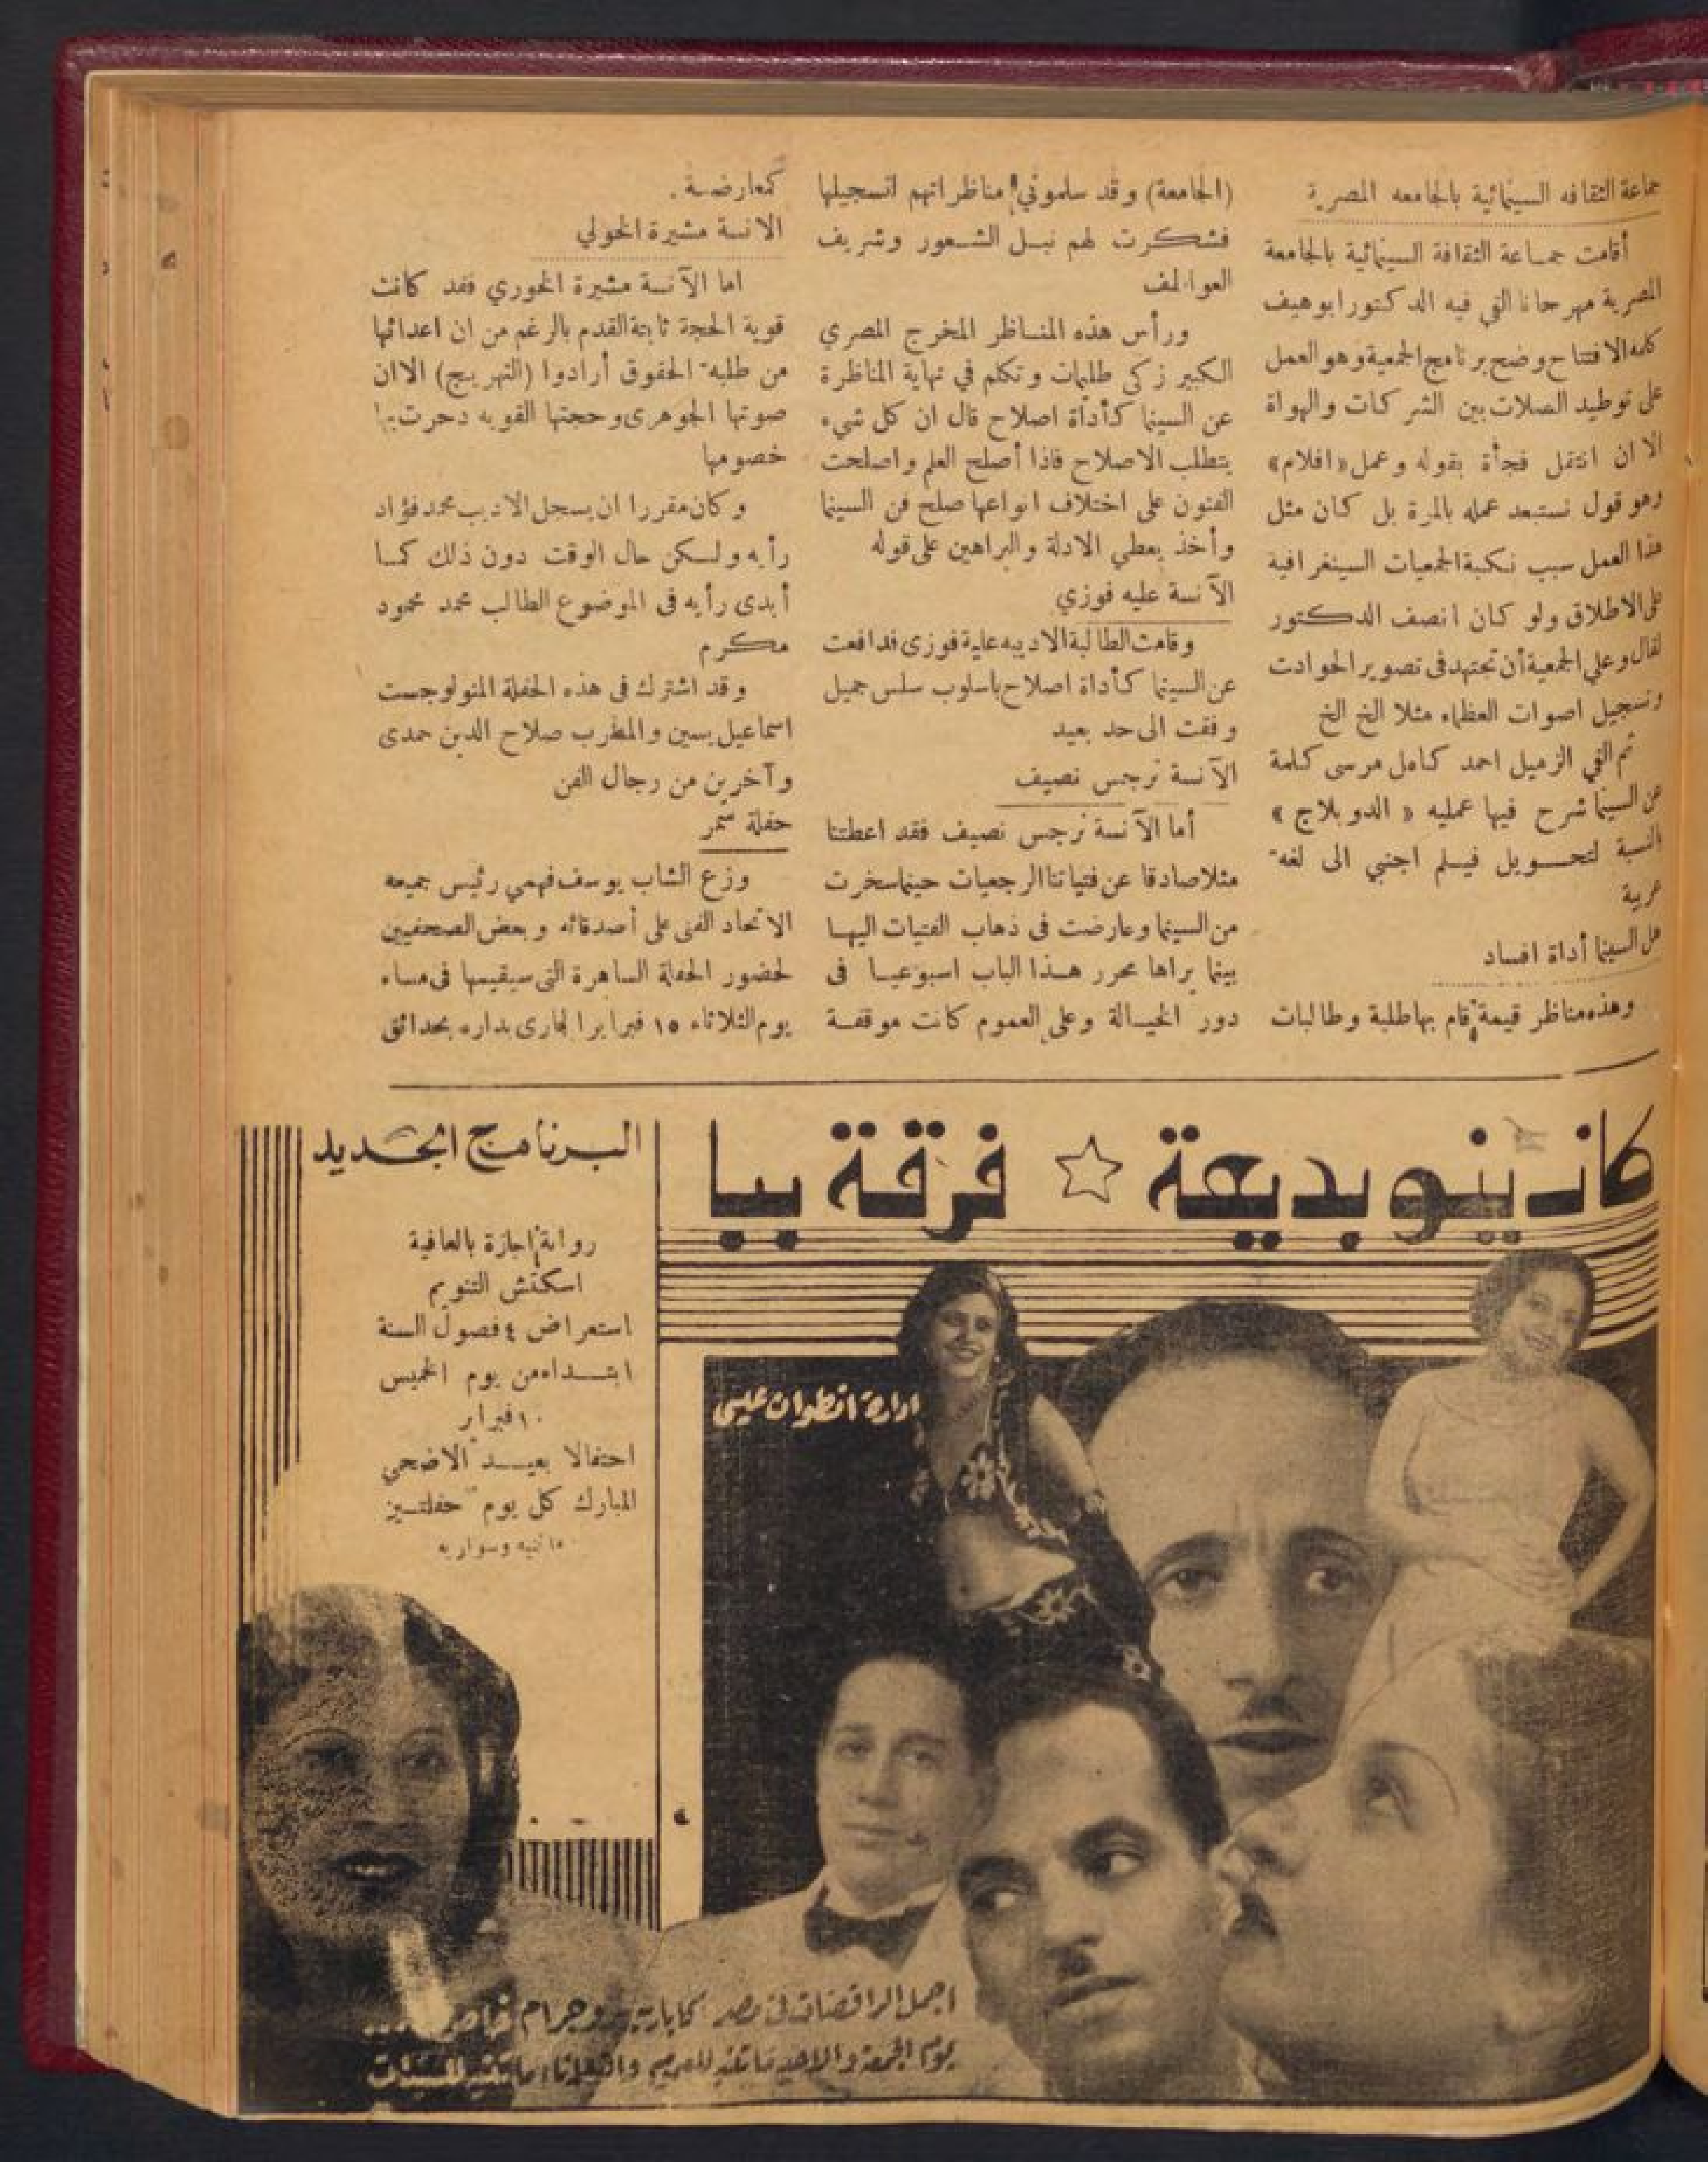 جماعة الثقافه السينمائية بالجامعه المصرية
أقامت جمـاعة الثقافة السينمائية بالجامعة
المصرية مهرجانا القي فيه الدكتور ابوهيف
كلمه الافتتاح وضح برنامج الجمعية وهو العمل
على توطيد الصلات بين الشركات والهواة
الا ان انتقل فجأة بقوله وعمل «افلام»
وهو قول نستبعد عمله بالمرة بل كان مثل
هذا العمل سبب نكبة الجمعيات السينغرافية
على الاطلاق ولو كان انصف الدكتور
لقال وعلي الجمعية أن تجتهد في تصوير الحوادث
وتسجيل اصوات العظاء مثلا الخ الخ
ثم القي الزميل احمد كامل مرسى كلمة
عن السينما شرح فيها عمليه « الدوبلاج »
النسبة لتحـــويل فيــلم اجنبي الى لغة
عربية
هل السينما أداة افساد
وهذه مناظر قيمة قام بها طلبة وطالبات
(الجامعة) وقد سلموني مناظراتهم لتسجيلها
فشكرت لهم نبـل الشـعور وشريف
العواطف
ورأس هذه المنـاظر المخرج المصري
الكبير زكى طليمات وتكلم في نهاية المناظرة
عن السينما كأداة اصلاح قال ان كل شيء
يتطلب الاصلاح فاذا أصلح العلم واصلحت
الفنون على اختلاف انواعها صلح فن السينما
وأخذ يعطي الادلة والبراهين على قوله
الآنسة عليه فوزي
وقامت الطالبة الاديبه علية فوزى فدافعت
عن السينما كأداة اصلاح باسلوب سلس جميل
وفقت الى حد بعيد
الآنسة نرجس نصيف
أما الآنسة نرجس نصيف فقد اعطتنا
مثلا صادقا عن فتياتنا الرجعيات حينما سخرت
من السينما وعارضت فى ذهاب الفتيات اليهـا
بينما يراها محرر هـذا الباب اسبوعيـا فى
دور الخيـالة وعلى العموم كانت موقفـة
كمعارضـة.
الانسة مشيرة الخولي
اما الآنسة مشيرة الخوري فقد كانت
قوية الحجة ثابتة القدم بالرغم من ان اعدائها
من طلبة الحقوق أرادوا (التهريج) الا ان
صوتها الجوهرى وحجتها القويه دحرت بها
خصومها
وكان مقررا ان يسجل الاديب محمد فؤاد
رأيه ولـكن حال الوقت دون ذلك كمـا
أبدى رأيه فى الموضوع الطالب محمد محمود
مكرم
وقد اشترك فى هذه الحفلة المنولوجست
اسماعيل يسين والمطرب صلاح الدين حمدى
وآخرين من رجال الفن
حفلة سمر
وزع الشاب يوسف فهمي رئيس جميعه
الاتحاد الفنى على أصدقائه وبعض الصحفيين
لحضور الحفلة الساهرة التى سيقيمها فى مساء
يوم الثلاثاء ١٥ فبراير الجارى بداره بحدائق
كازينو بديعة ☆ فرقة ببا
ادارة انطوان عيسى
البرنامج الجديد
رواية اجازة بالعافية
اسكتش التنويم
استعراض ٤ فصول السنة
ابتـــداء من يوم الخميس
١٠ فبراير
احتفالا بعيـــد الاضحي
المبارك كل يوم حفلتــين
ماتنيه وسواريه
اجمل الراقصات فى مصر كاباريه وبروجرام خاص ...
يوم الجمعة والاحد ماتنيه للعموم والثلاثاء ماتنيه للسيدات